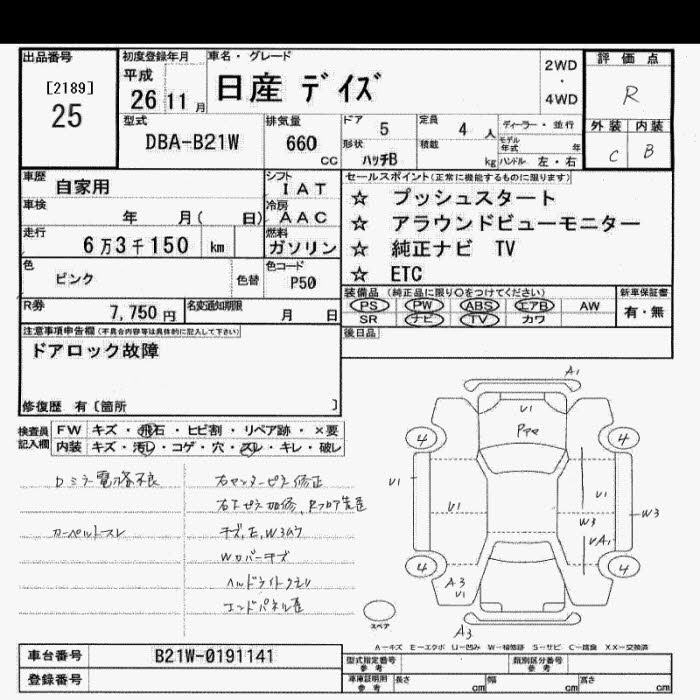 出品番号
[2189]
25
初度登録年月
平成
26 11 月
車名・グレード
日産 デイズ
2WD
・
4WD
評価点
R
外装 内装
C B
型式
DBA-B21W
排気量
660
cc
ドア 5
定員 4 人
ディーラー・並行
形状 ハッチB
積載 kg
モデル年式 年
ハンドル 左・右
車歴
自家用
シフト
IAT
車検
年 月( 日)
冷房
AAC
走行
6万3千150 km
燃料
ガソリン
色
ピンク
色替
色コード
P50
R券
7,750円
名変通知期限
月 日
セールスポイント(正常に機能するものに限ります)
☆ プッシュスタート
☆ アラウンドビューモニター
☆ 純正ナビ TV
☆ ETC
装備品(純正品に限り○をつけてください)
PS PW ABS エアB AW
SR ナビ TV カワ
新車保証書
有・無
後日品
注意事項申告欄(不具合内容等は具体的に記入して下さい)
ドアロック故障
修復歴 有〔箇所 〕
検査員
記入欄
FW キズ・飛石・ヒビ割・リペア跡・×要
内装 キズ・汚レ・コゲ・穴・スレ・キレ・破レ
カーペットスレ
A1
U1
4
4
U1
U1
W3
W3
4
4
A3
U1
A3
スペア
A-キズ E-エクボ U-凹み W-補修跡 S-サビ C-腐食 XX-交換済
車台番号
B21W-0191141
登録番号
型式指定番号
参考
類別区分番号
参考
車庫証明用
参考
長さ cm 幅 cm 高さ cm